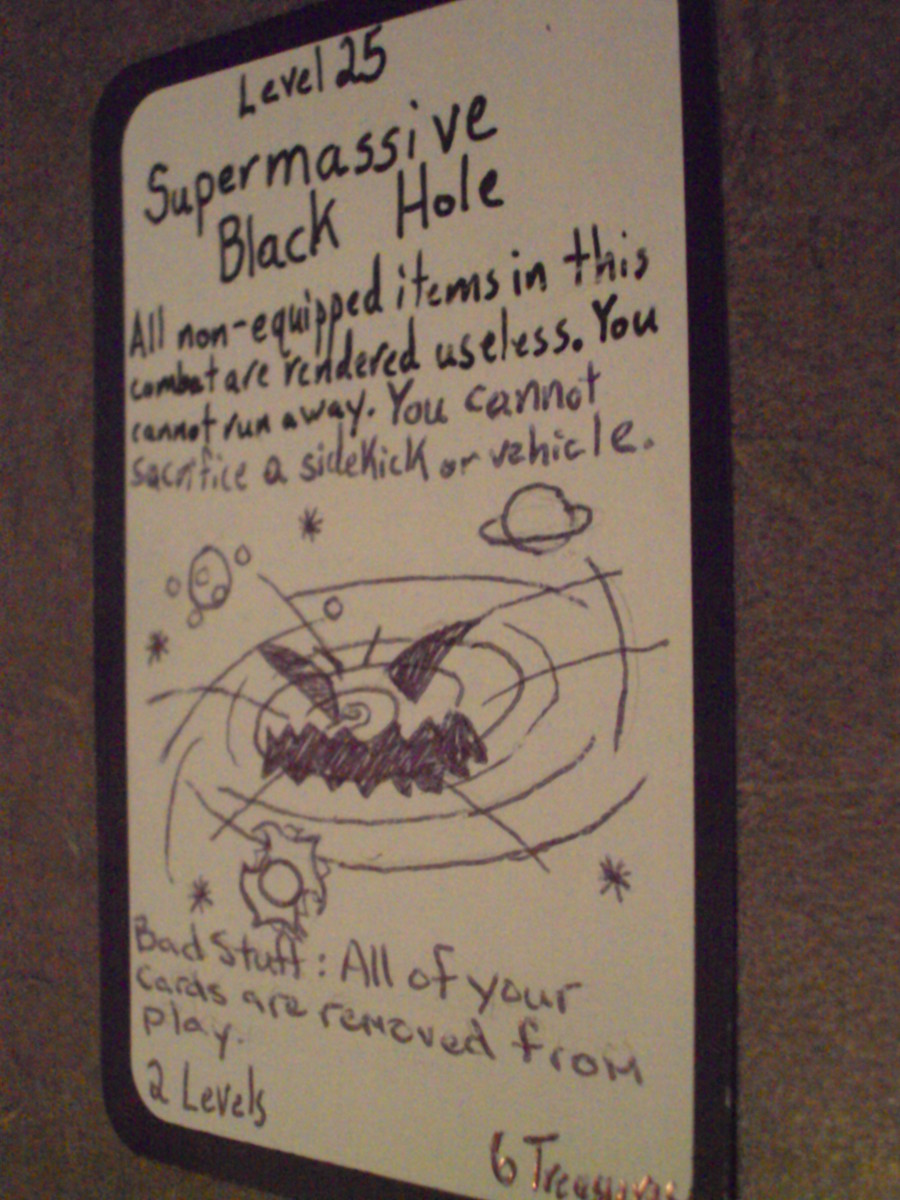 Level 25
Supermassive
Black Hole
All non-equipped items in this
combat are rendered useless. You
cannot run away. You cannot
sacrifice a sidekick or vehicle.
Bad Stuff: All of your
cards are removed from
play.
2 Levels
6 Treasures